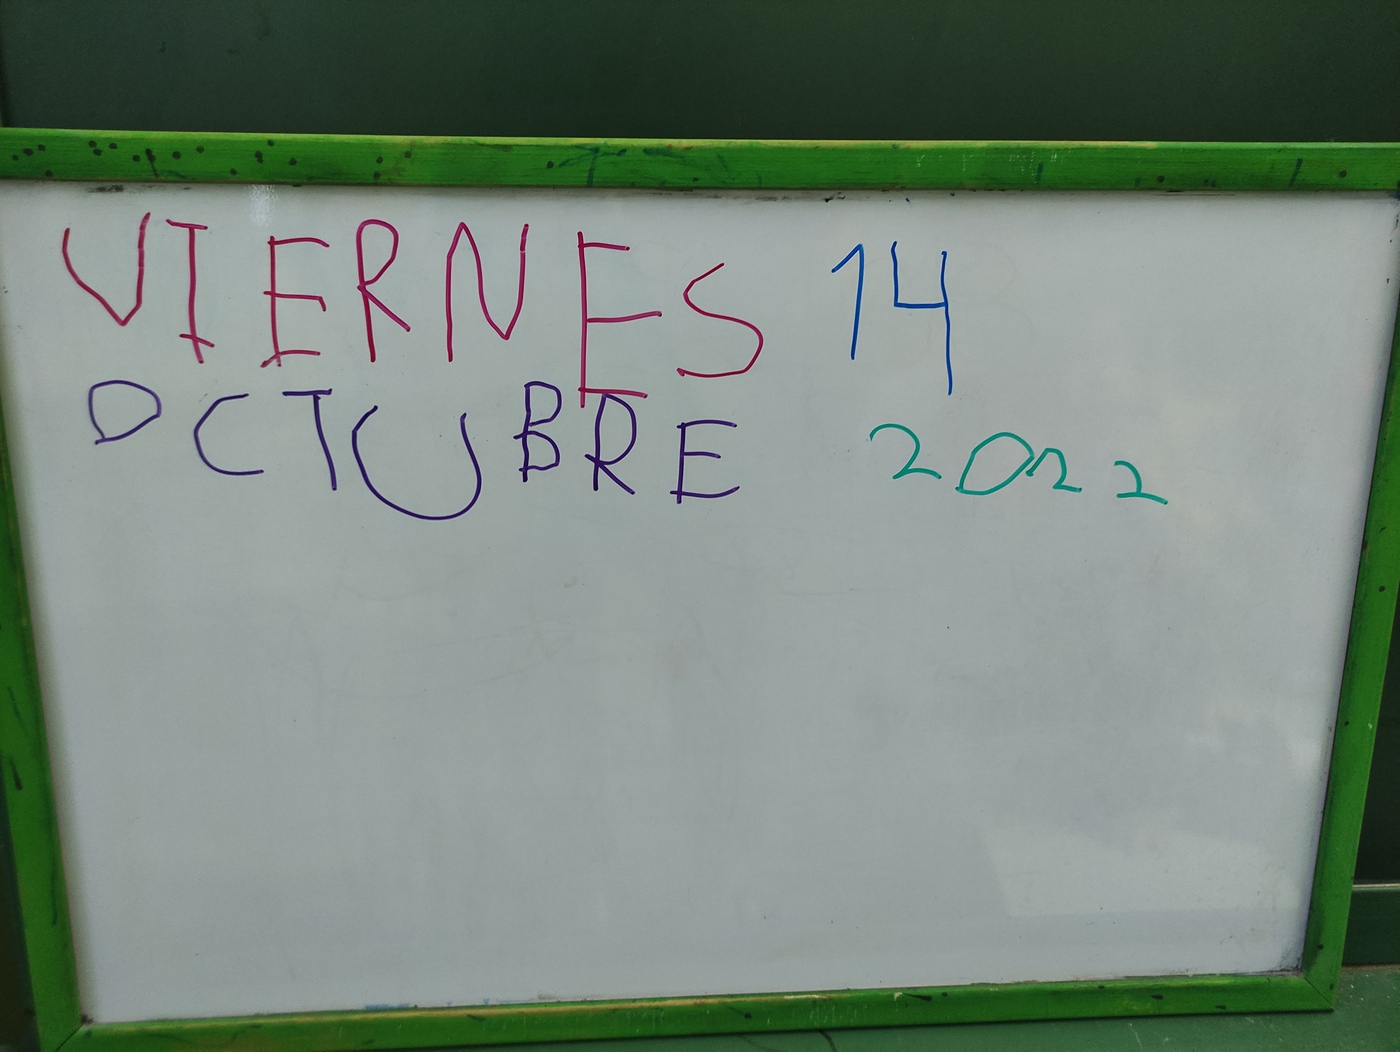 VIERNES 14
OCTUBRE 2022